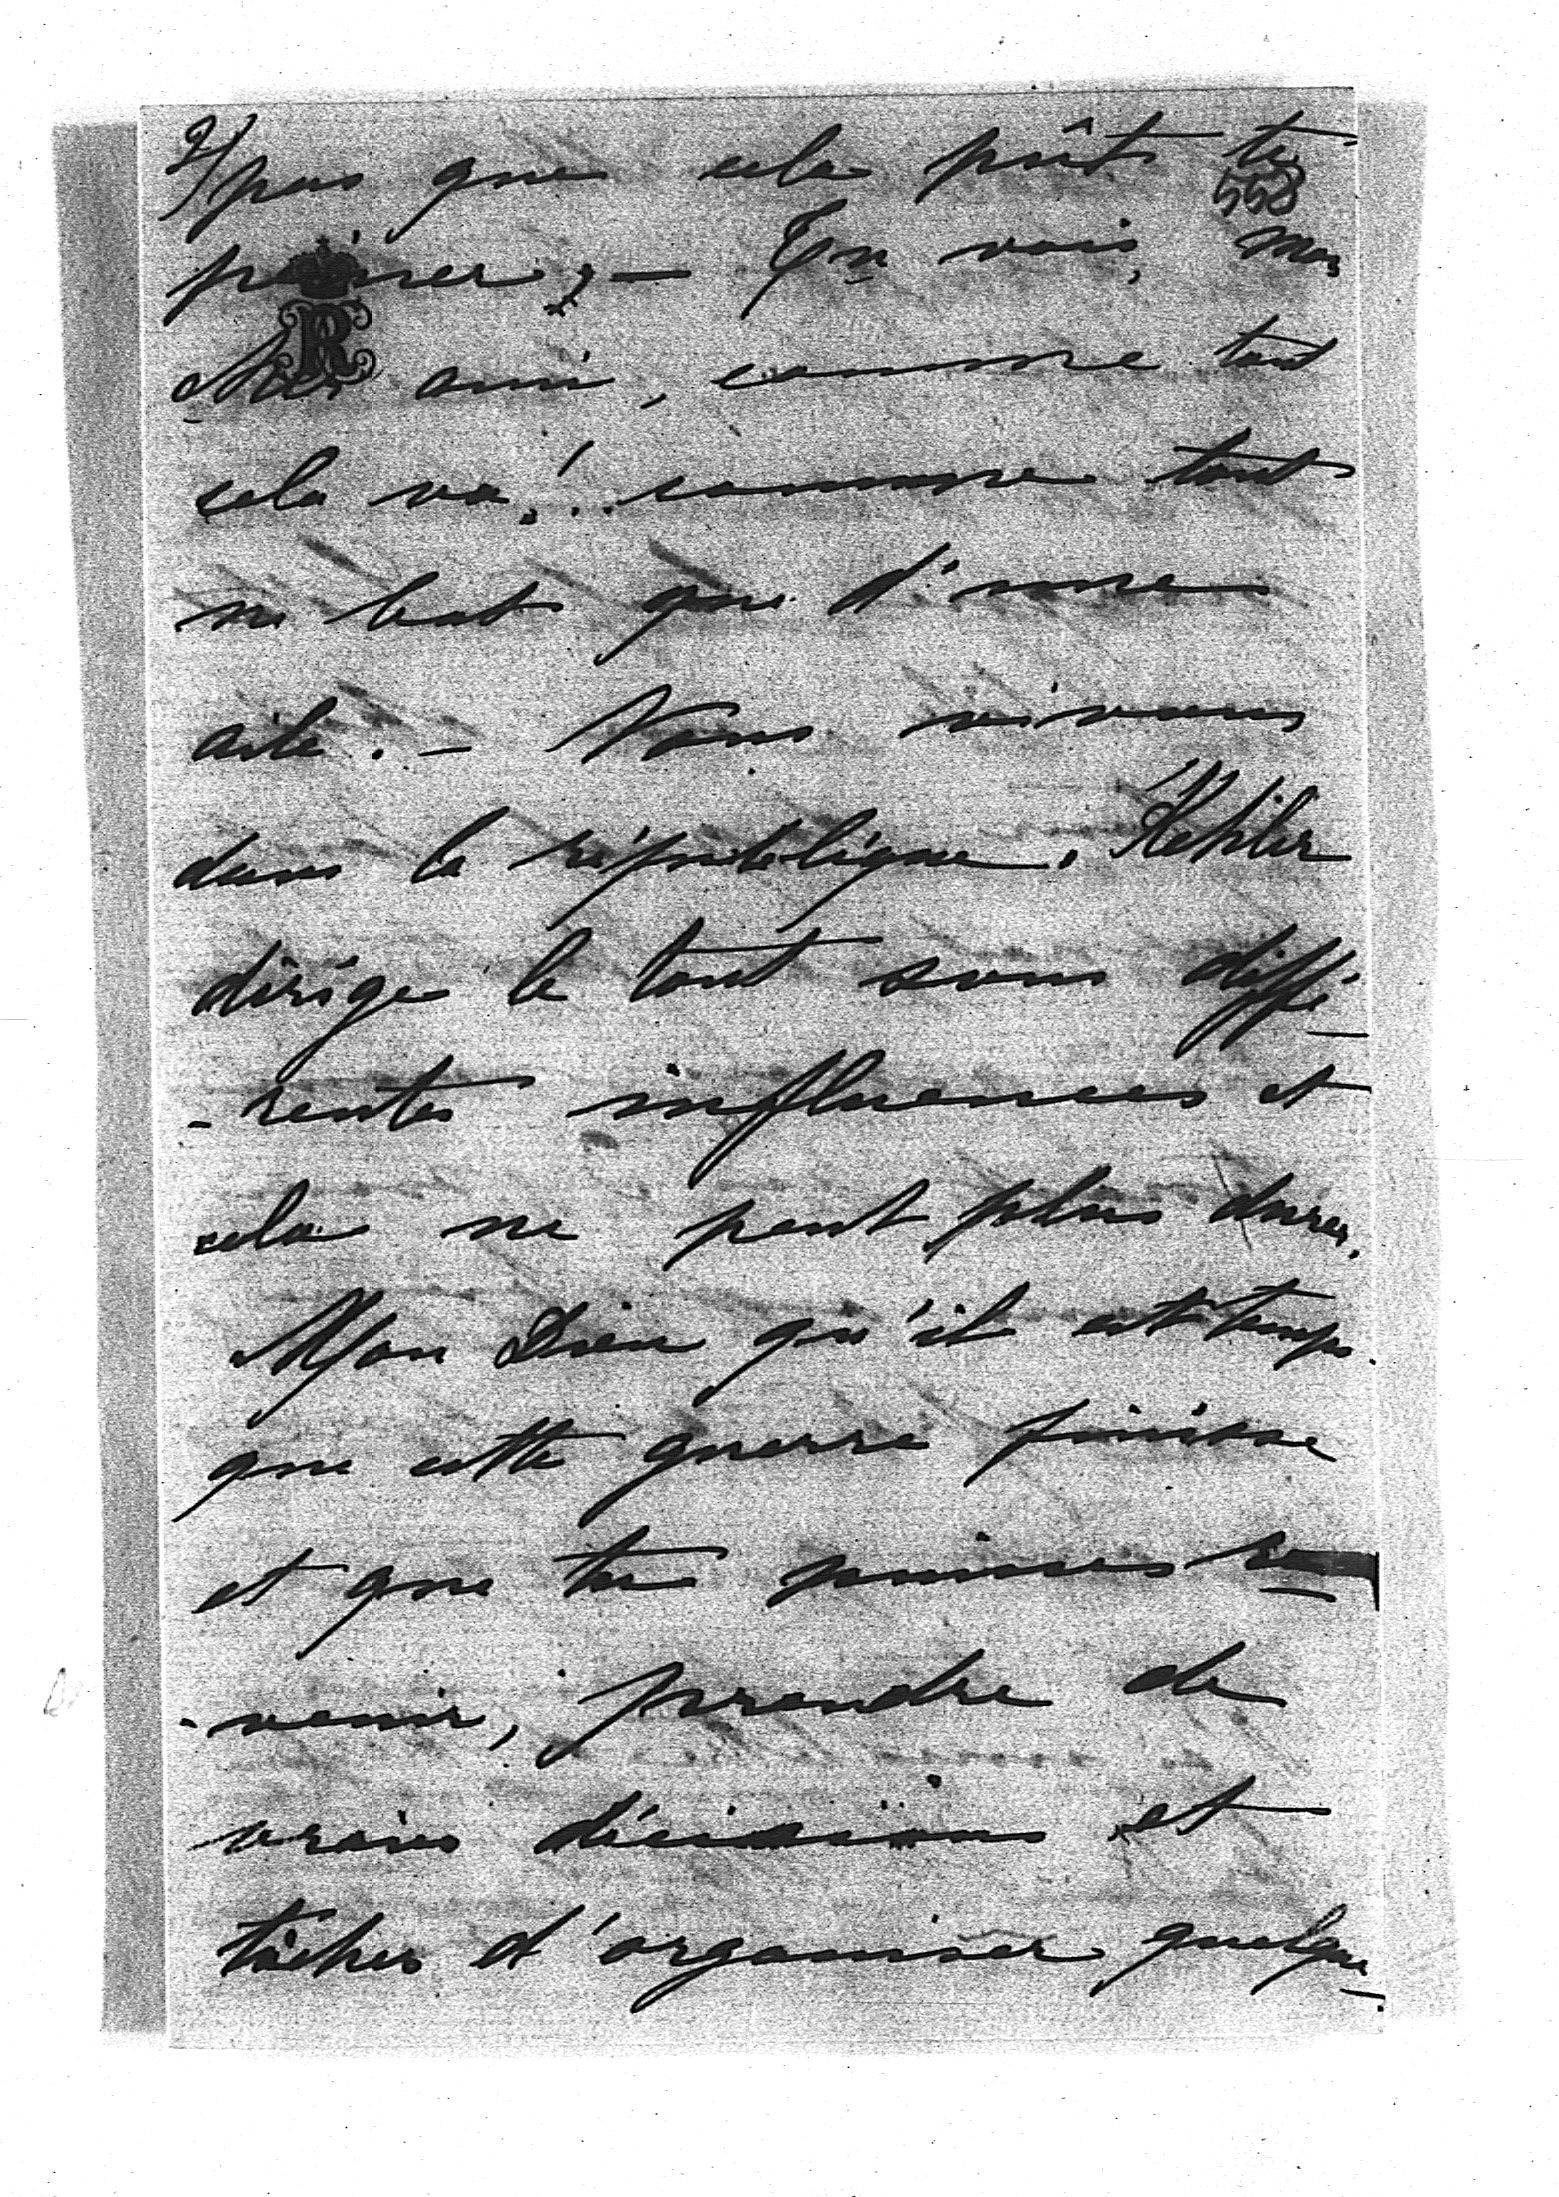 2/ pas que cela pût te
558
peiner; — Tu vois, mon
R
cher ami, comme tout
cela va!.. comme tout
ne bat que d'une
aile. — Nous vivons
dans la république. Kehler
dirige le tout sous diffé-
-rentes influences et
cela ne peut plus durer.
Mon Dieu qu'il est temps
que cette guerre finisse
et que tu puisses re-
-venir, prendre de
vraies décisions et
tâcher d'organiser quelque-